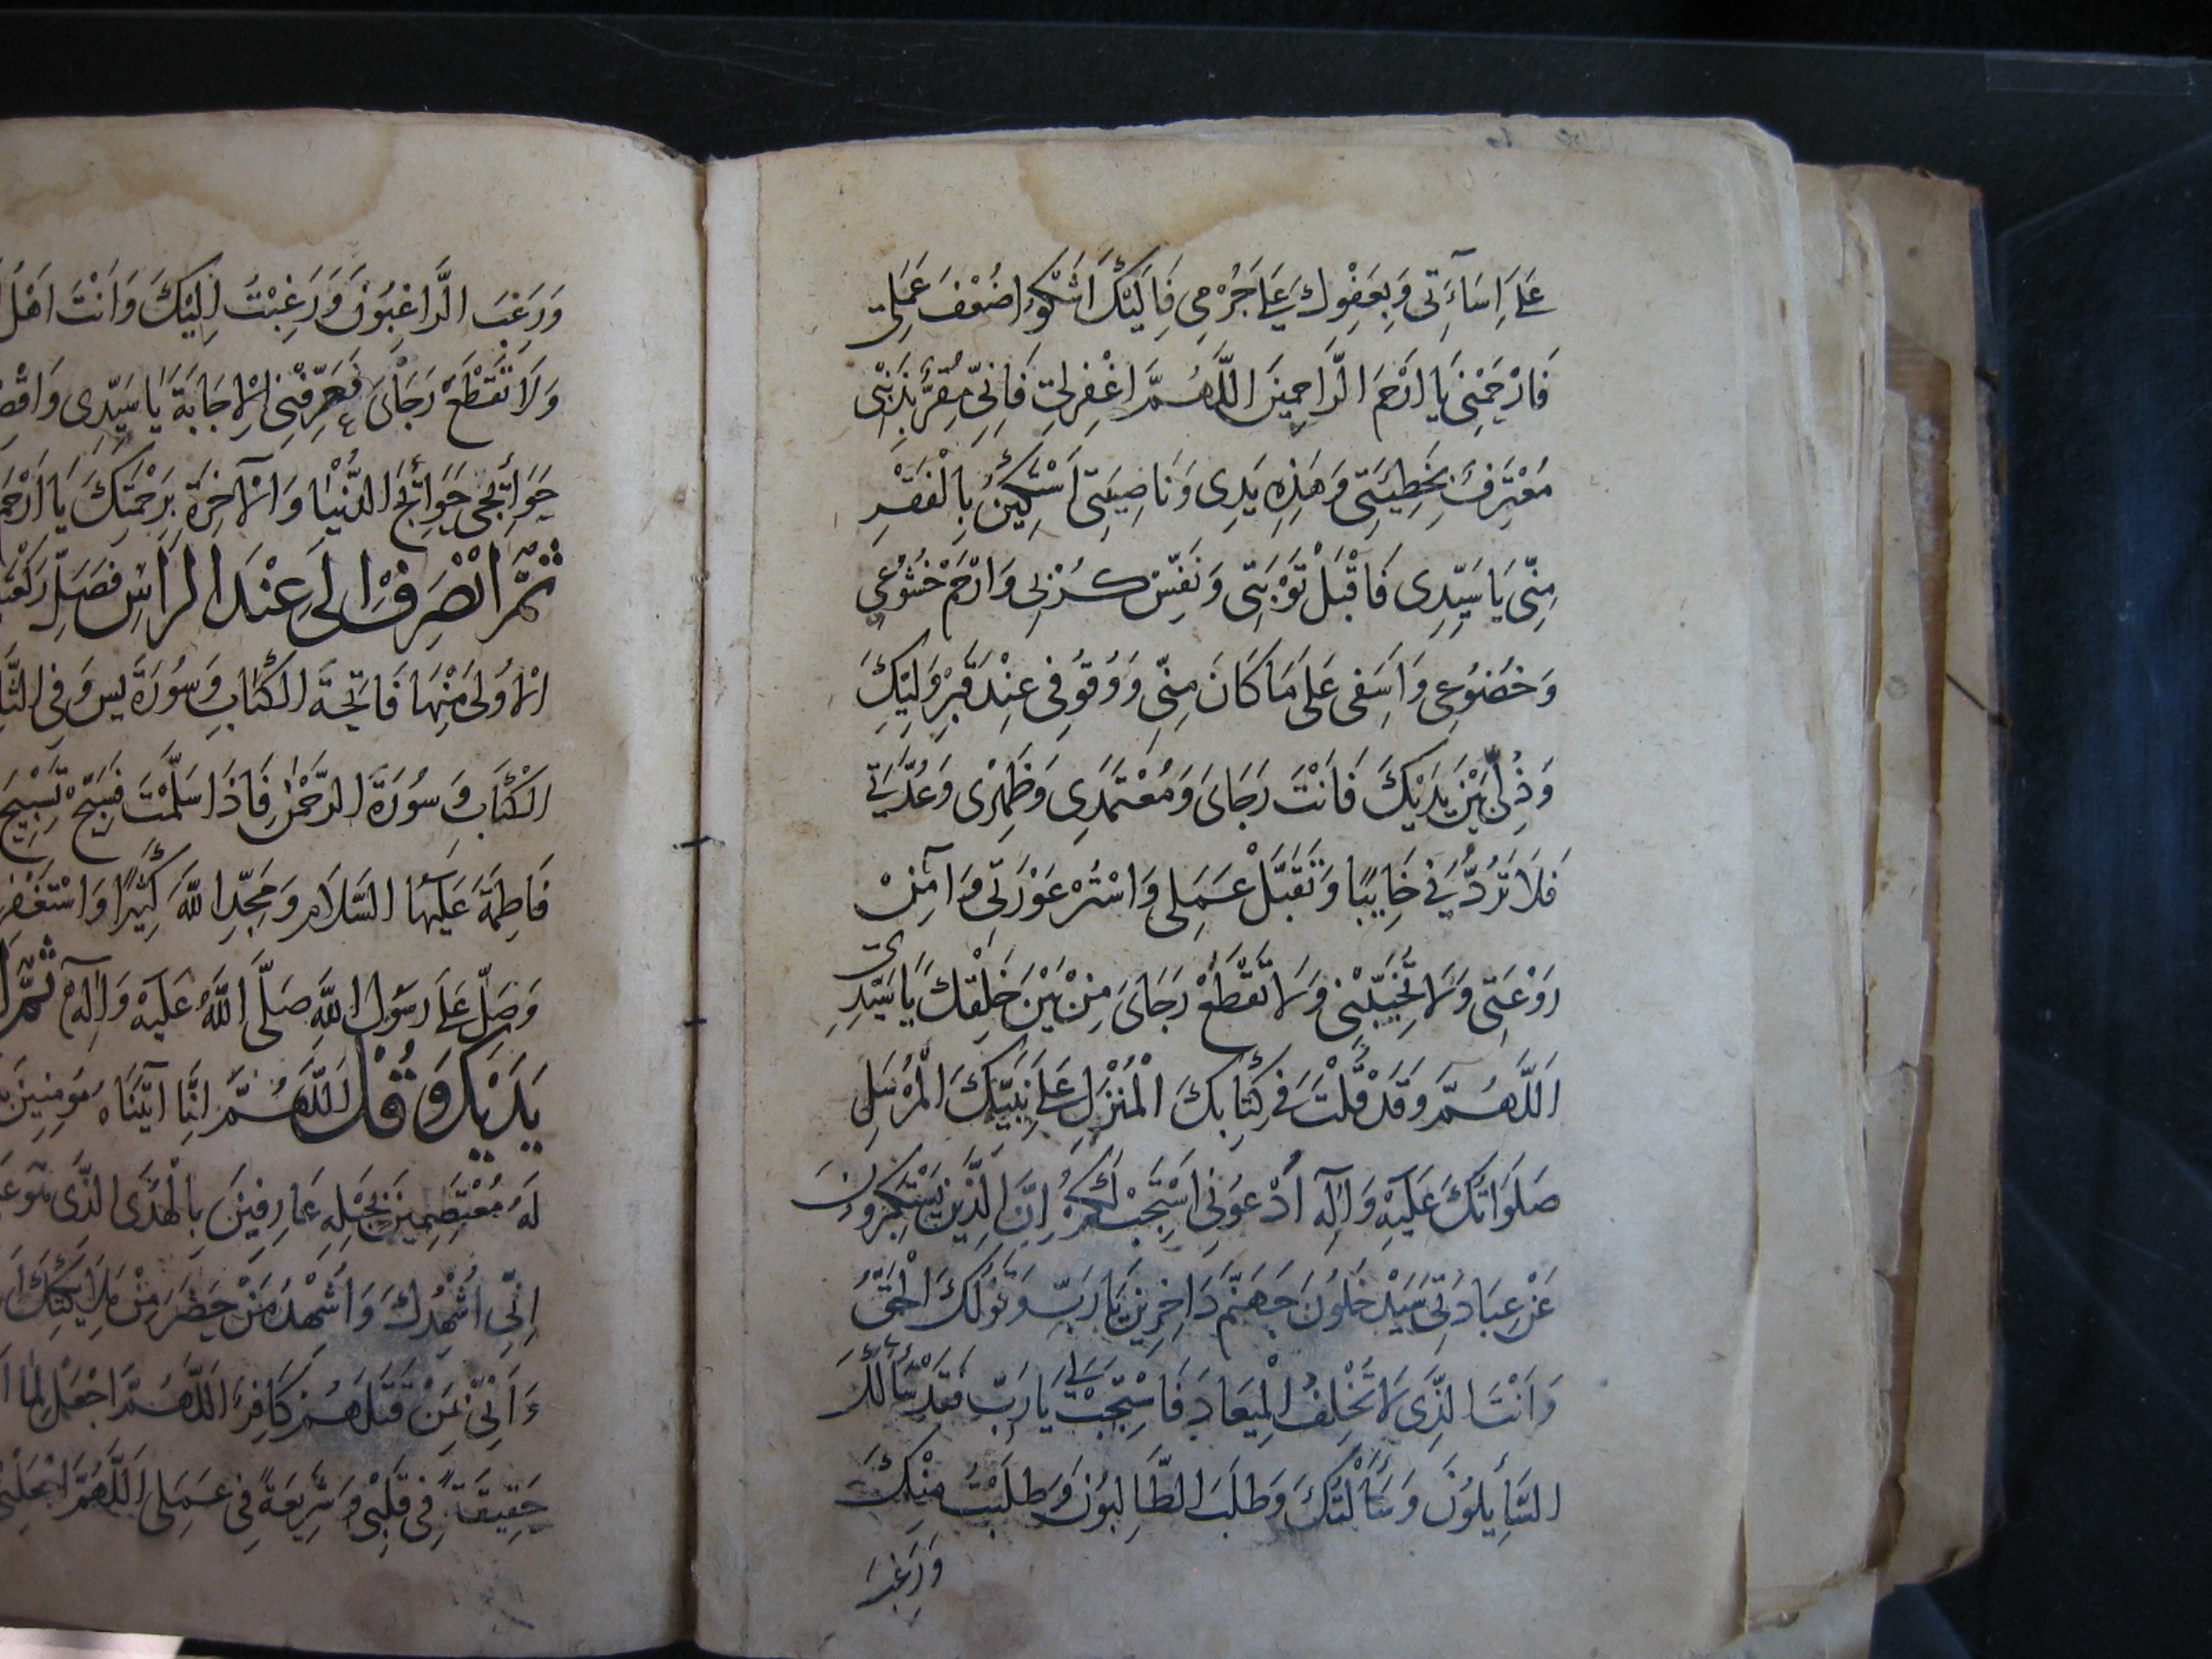 عَلَى اِسَاۤءَتِى وَبِعَفْوِكَ عَلَى جُرْمِى فَاِلَيْكَ اَشْكُوا ضُعْفَ عَمَلِى
فَارْحَمْنِى يَا اَرْحَمَ الرَّاحِمِينَ اَللّٰهُمَّ اغْفِرْلِى فَاِنِّى مُقِرٌّ بِذَنْبِى
مُعْتَرِفٌ بِخَطِيئَتِى وَهٰذِهِ يَدِى وَنَاصِيَتِى اَسْتَكِينُ بِالْفَقْرِ
مِنِّى يَا سَيِّدِى فَاقْبَلْ تَوْبَتِى وَنَفِّسْ كُرْبَتِى وَارْحَمْ خُشُوعِى
وَخُضُوعِى وَاَسَفِى عَلَى مَا كَانَ مِنِّى وَوُقُوفِى عِنْدَ قَبْرِ وَلِيِّكَ
وَذُلِّى بَيْنَ يَدَيْكَ فَاَنْتَ رَجَائِى وَمُعْتَمَدِى وَظَهْرِى وَعُدَّتِى
فَلَا تَرُدَّنِى خَايِبًا وَتَقَبَّلْ عَمَلِى وَاسْتُرْ عَوْرَتِى وَاٰمِنْ
رَوْعَتِى وَلَا تُخَيِّبْنِى وَلَا تَقْطَعْ رَجَائِى مِنْ بَيْنِ خَلْقِكَ يَا سَيِّدِى
اَللّٰهُمَّ وَقَدْ قُلْتَ فِى كِتَابِكَ الْمُنْزَلِ عَلَى نَبِيِّكَ الْمُرْسَلِ
صَلَوَاتُكَ عَلَيْهِ وَاٰلِهِ اُدْعُونِى اَسْتَجِبْ لَكُمْ اِنَّ الَّذِينَ يَسْتَكْبِرُونَ
عَنْ عِبَادَتِى سَيَدْخُلُونَ جَهَنَّمَ دَاخِرِينَ يَا رَبِّ وَقَوْلُكَ الْحَقُّ
وَاَنْتَ الَّذِى لَا تُخْلِفُ الْمِيعَادَ فَاسْتَجِبْ لِى يَا رَبِّ فَقَدْ سَأَلَكَ
السَّايِلُونَ وَسَأَلْتُكَ وَطَلَبَ الطَّالِبُونَ وَطَلَبْتُ مِنْكَ
وَرَغِبَ
وَرَغِبَ الرَّاغِبُونَ وَرَغِبْتُ اِلَيْكَ وَاَنْتَ اَهْلُ
وَلَا تَقْطَعْ رَجَائِى فَعَرِّفْنِى الْاِجَابَةَ يَا سَيِّدِى وَاقْضِ
حَوَائِجِى حَوَائِجَ الدُّنْيَا وَالْاٰخِرَةِ بِرَحْمَتِكَ يَا اَرْحَمَ
ثُمَّ انْصَرِفْ اِلَى عِنْدَ الرَّاسِ فَصَلِّ رَكْعَتَ
الْاُولٰى مِنْهَا فَاتِحَةَ الْكِتَابِ وَسُورَةَ يس وَفِى الثَّا
الْكِتَابِ وَسُورَةَ الرَّحْمٰنِ فَاِذَا سَلَّمْتَ فَسَبِّحْ تَسْبِيحَ
فَاطِمَةَ عَلَيْهَا السَّلَامُ وَمَجِّدِ اللّٰهَ كَثِيرًا وَاسْتَغْفِرْ
وَصَلِّ عَلَى رَسُولِ اللّٰهِ صَلَّى اللّٰهُ عَلَيْهِ وَاٰلِهِ ثُمَّ
يَدَيْكَ وَقُلْ اَللّٰهُمَّ اِنَّا اَتَيْنَاهُ مُؤمِنِينَ
لَهُ مُعْتَصِمِينَ بِحَبْلِهِ عَارِفِينَ بِالْهُدَى الَّذِى هُوَ عَ
اِنِّى اُشْهِدُكَ وَاُشْهِدُ مَنْ حَضَرَ مِنْ مَلَايِكَتِكَ
وَاَنِّى بِمَنْ قَتَلَهُمْ كَافِرٌ اَللّٰهُمَّ اجْعَلْ لِمَا
حَقِيقَةً فِى قَلْبِى وَشَرِيعَةً فِى عَمَلِى اَللّٰهُمَّ اجْعَلْنِى